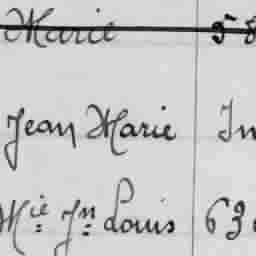 Marie 58
Jean Marie In
Mie Jn Louis 63